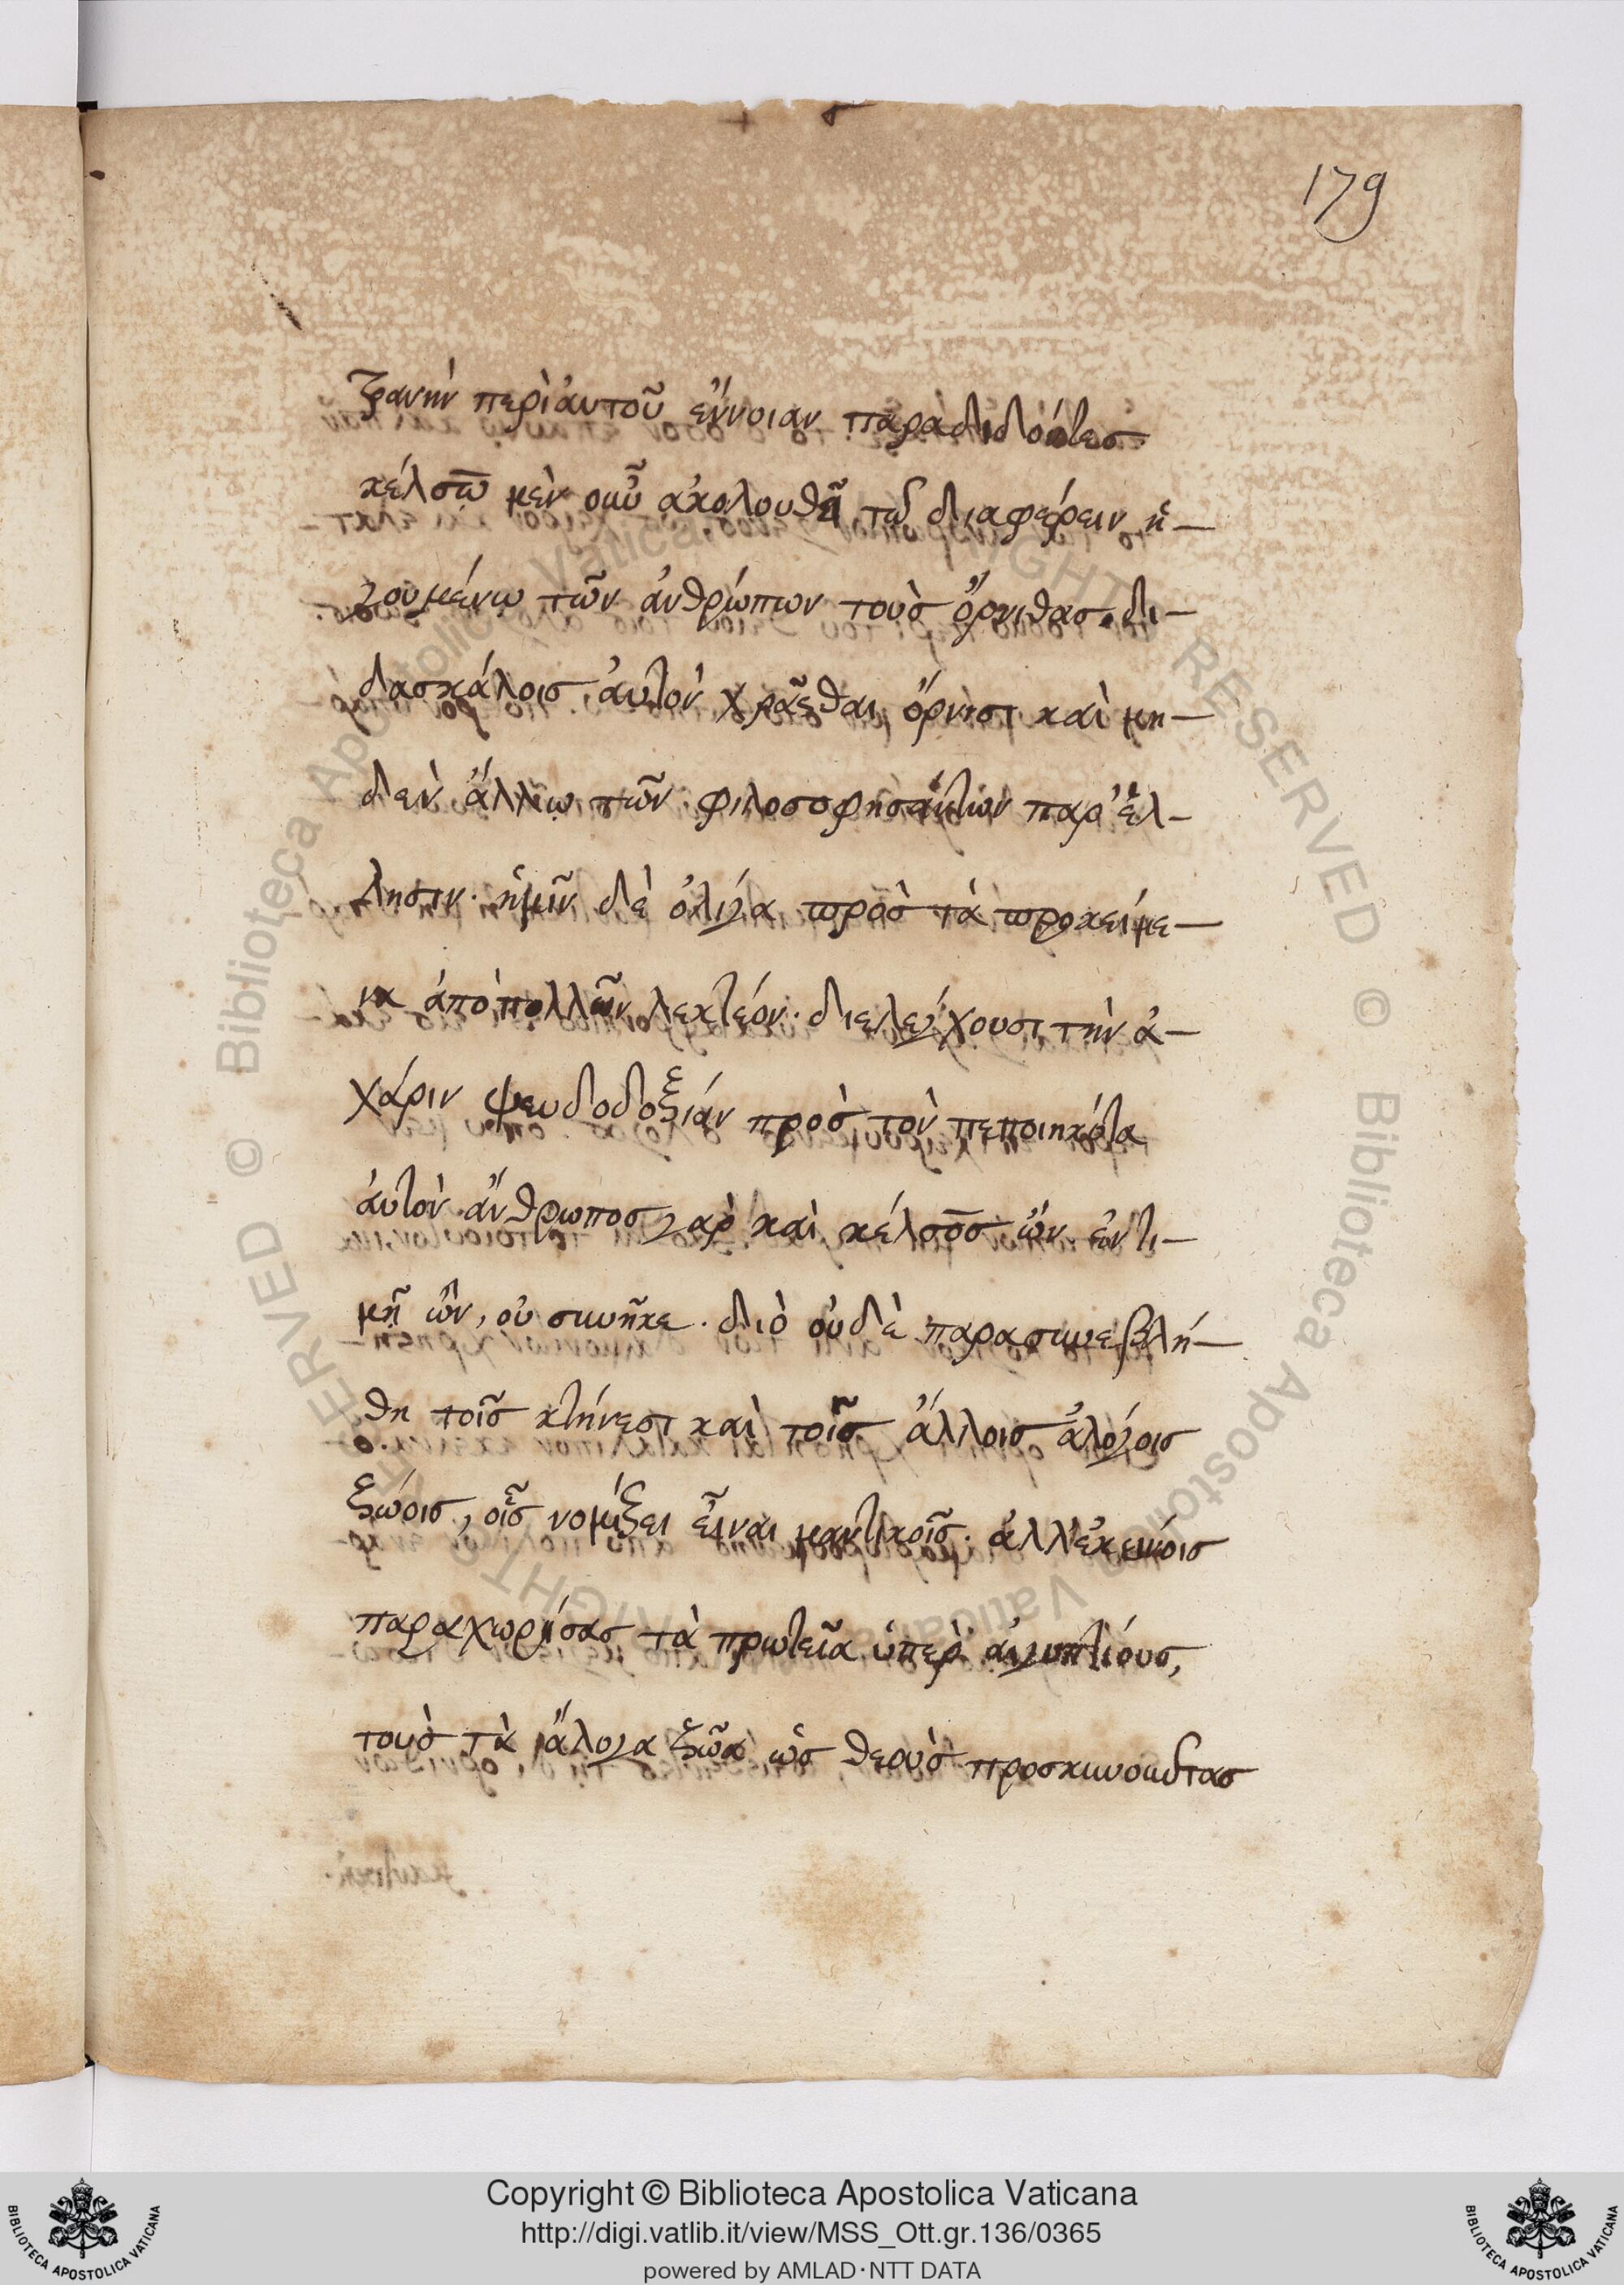 179
τρανὴν περὶ ἀυτοῦ ἔννοιαν παραδιδόντεσ
κέλσω μὲν οὖν ἀκολουθεῖ τῶ διαφέρειν ἡ-
γουμένω τῶν ἀνθρώπων τοὺσ ὄρνιθασ. δι-
δασκάλοισ ἀυτὸν χρᾶσθαι ὄρνισι καὶ μη-
δενὶ ἄλλω τῶν φιλοσοφησάντων παρ' ἕλ-
λησιν. ἡμῖν δὲ ὀλίγα πρὸσ τὰ προκείμε-
να ἀπὸ πολλῶν λεκτέον. διελέγχουσι τὴν ἀ-
χάριν ψευδοδοξίαν πρὸσ τὸν πεποιηκότα
ἀυτὸν. ἄνθρωποσ γὰρ καὶ κέλσοσ ὢν. ἐν τι-
μῆ ὢν, οὐ συνῆκε. διὸ οὐδὲ παρασυνεβλή-
θη τοῖσ κτήνεσι καὶ τοῖσ ἄλλοισ ἀλόγοισ
ζώοισ, οἷσ νομίζει εἶναι μαντικοῖσ. ἀλλ' ἐκείνοισ
παραχωρήσασ τὰ πρωτεῖα ὑπὲρ ἀιγυπτίουσ,
τοὺσ τὰ ἄλογα ζῶα ὡσ θεοὺσ προσκυνοῦντασ
© Biblioteca Apostolica Vaticana
RIGHTS RESERVED
Copyright © Biblioteca Apostolica Vaticana
http://digi.vatlib.it/view/MSS_Ott.gr.136/0365
powered by AMLAD·NTT DATA
BIBLIOTECA APOSTOLICA VATICANA
BIBLIOTECA APOSTOLICA VATICANA